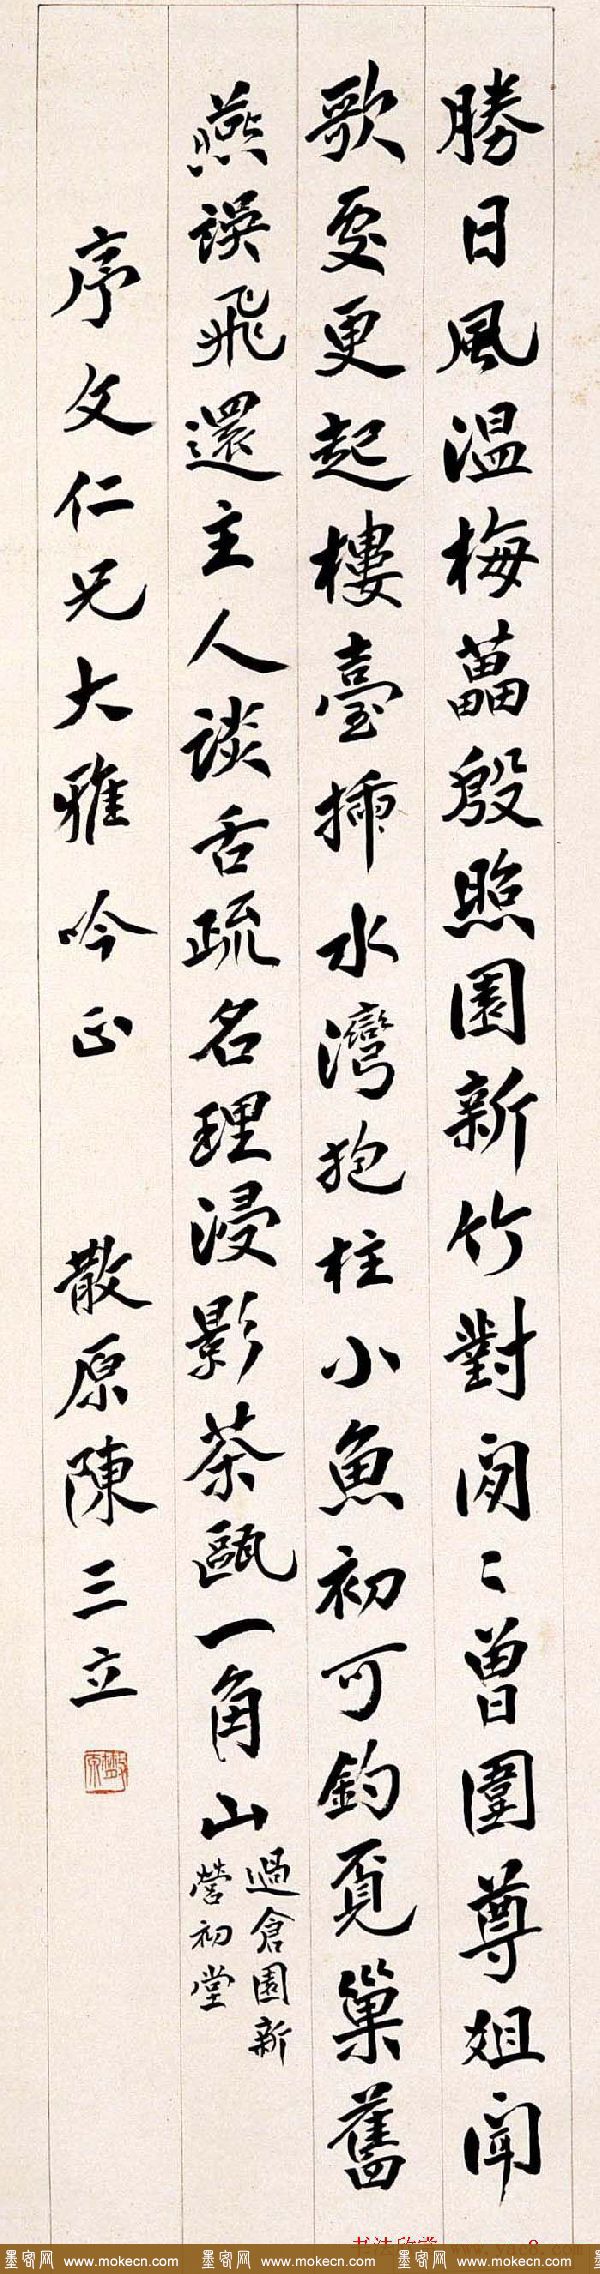 勝日風温梅藟殷照園新竹對閑〻曾圍尊俎聞
歌處更起樓臺揷水灣抱柱小魚初可釣覓巢舊
燕誤飛還主人談舌疏名理浸影茶甌一角山
過倉園新
營初堂
序文仁兄大雅吟正 散原陳三立
散原
墨客网 www.mokecn.com 墨客网 www.mokecn.com 墨客网 www.mokecn.com